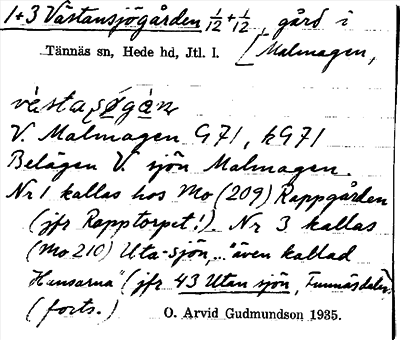 1+3 Västansjögården 1/12 + 1/12, gård i
Tännäs sn, Hede hd, Jtl. l. [Malmagen,
V. Malmagen G71, kG71
Belägen V. sjön Malmagen.
Nr 1 kallas hos Mo (209) Rappgården
(jfr Rapptorpet!). Nr 3 kallas
(Mo 210) Uta-sjön,..."även kallad
Hansarna" (jfr 43 Utan sjön, Funnäsdalen.
(forts.)
O. Arvid Gudmundson 1935.